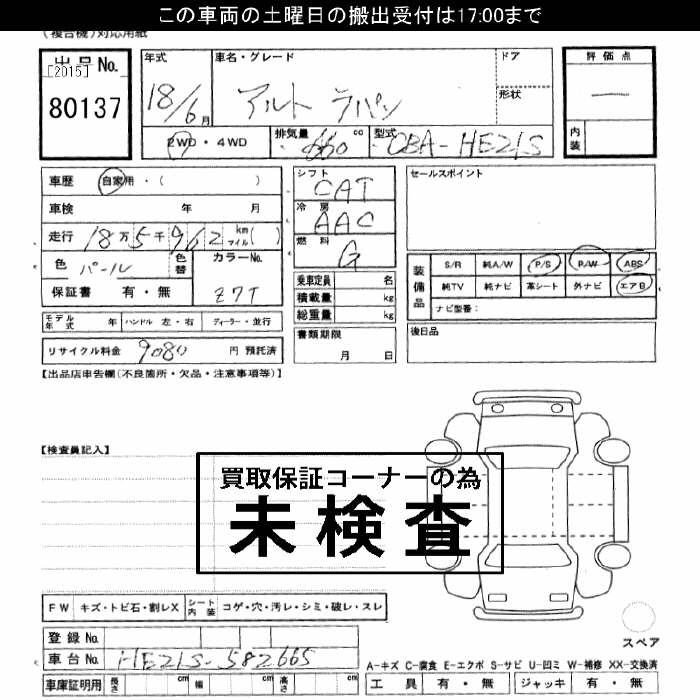 この車両の土曜日の搬出受付は17:00まで
(複合機)対応用紙
出品No.
[2015]
80137
年式
18/6月
車名・グレード
アルト ラパン
ドア
形状
評価点
―
内装
2WD・4WD
排気量
660 cc
型式
CBA-HE21S
車歴 自家用・( )
車検 年 月
走行 18万5千962 km マイル( )
色 パール
色替
カラーNo.
Z7T
保証書 有・無
モデル年式 年 ハンドル 左・右 ディーラー・並行
リサイクル料金 9080 円 預託済
シフト
CAT
冷房
AAC
燃料
G
乗車定員 名
積載量 kg
総重量 kg
書類期限
月 日
セールスポイント
装備品
S/R 純A/W P/S P/W ABS
純TV 純ナビ 革シート 外ナビ エアB
ナビ型番:
後日品
【出品店申告欄(不良箇所・欠品・注意事項等)】
【検査員記入】
買取保証コーナーの為
未検査
FW キズ・トビ石・割レX シート内装 コゲ・穴・汚レ・シミ・破レ・スレ
登録No.
車台No. HE21S-582665
車庫証明用 長さ cm 幅 cm 高さ cm
スペア
A-キズ C-腐食 E-エクボ S-サビ U-凹ミ W-補修 XX-交換済
工具 有・無 ジャッキ 有・無